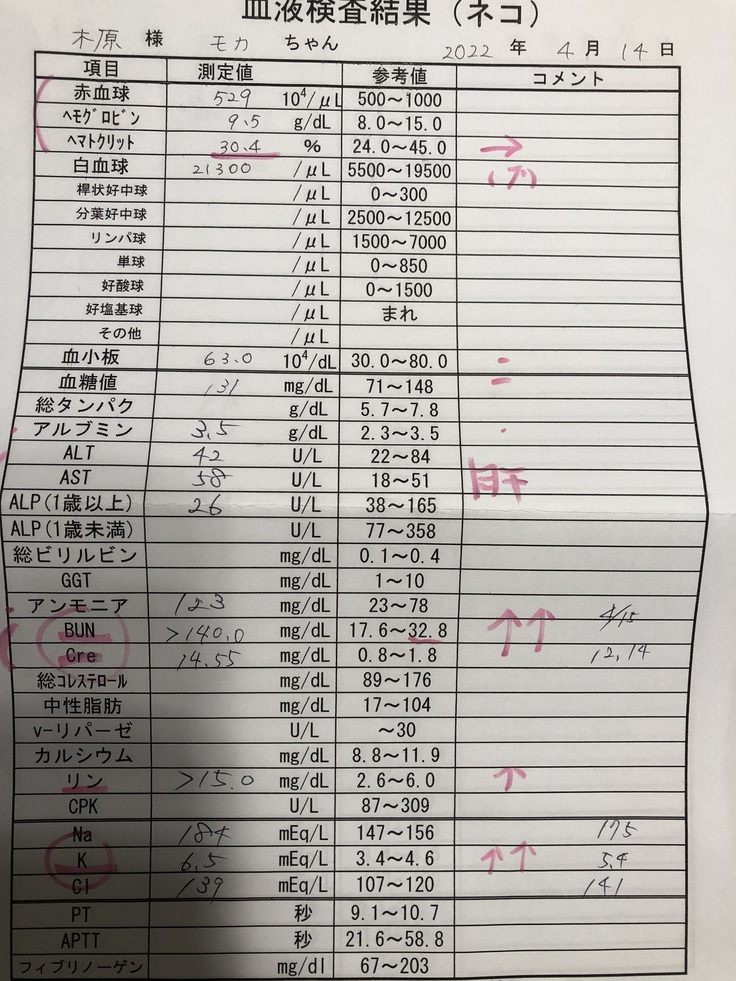 血液検査結果（ネコ）
木原 様 モカ ちゃん 2022 年 4 月 14 日
項目 測定値 参考値 コメント
赤血球 529 10⁴/μL 500～1000
ﾍﾓｸﾞﾛﾋﾞﾝ 9.5 g/dL 8.0～15.0
ﾍﾏﾄｸﾘｯﾄ 30.4 % 24.0～45.0 →
白血球 21300 /μL 5500～19500
桿状好中球 /μL 0～300
分葉好中球 /μL 2500～12500
リンパ球 /μL 1500～7000
単球 /μL 0～850
好酸球 /μL 0～1500
好塩基球 /μL まれ
その他 /μL
血小板 63.0 10⁴/dL 30.0～80.0
血糖値 131 mg/dL 71～148
総タンパク g/dL 5.7～7.8
アルブミン 3.5 g/dL 2.3～3.5
ALT 42 U/L 22～84
AST 58 U/L 18～51 肝
ALP(1歳以上) 26 U/L 38～165
ALP(1歳未満) U/L 77～358
総ビリルビン mg/dL 0.1～0.4
GGT mg/dL 1～10
アンモニア 123 mg/dL 23～78
BUN >140.0 mg/dL 17.6～32.8 ↑↑ 4/15
Cre 14.55 mg/dL 0.8～1.8 12.14
総ｺﾚｽﾃﾛｰﾙ mg/dL 89～176
中性脂肪 mg/dL 17～104
v-リパーゼ U/L ～30
カルシウム mg/dL 8.8～11.9
リン >15.0 mg/dL 2.6～6.0 ↑
CPK U/L 87～309
Na 184 mEq/L 147～156 175
K 6.5 mEq/L 3.4～4.6 ↑↑ 5.4
Cl 139 mEq/L 107～120 141
PT 秒 9.1～10.7
APTT 秒 21.6～58.8
フィブリノーゲン mg/dl 67～203